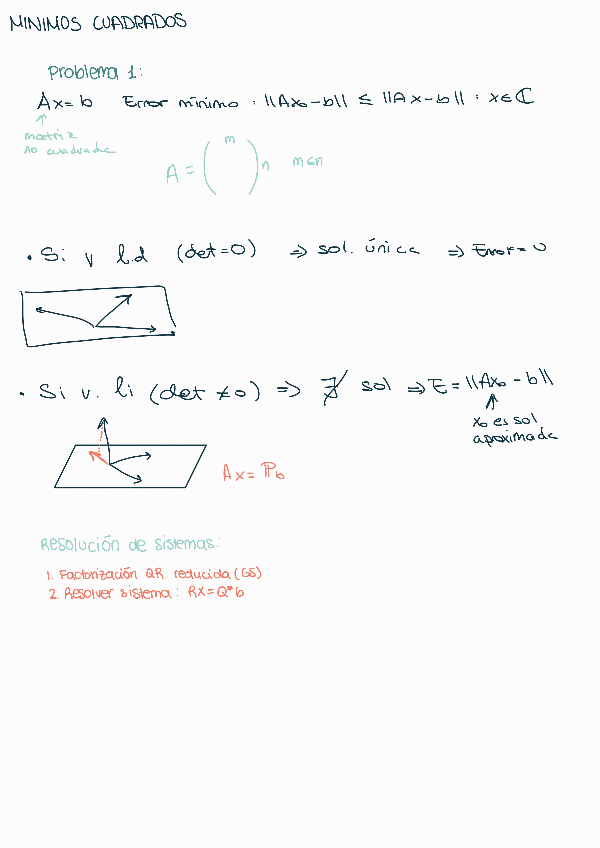 MINIMOS CUADRADOS
Problema 1:
Ax = b Error mínimo : ||Ax₀ - b|| ≤ ||Ax - b|| : x ∈ ℂ
matriz
no cuadrada
A = ( m ) n m<n
• Si v l.d (det=0) ⇒ sol. única ⇒ Error = 0
• Si v. li (det ≠ 0) ⇒ ∄ sol ⇒ E = ||Ax₀ - b||
x₀ es sol
aproximada
Ax = ℙb
Resolución de sistemas:
1. Factorización QR reducida (GS)
2. Resolver sistema: RX = Q*b